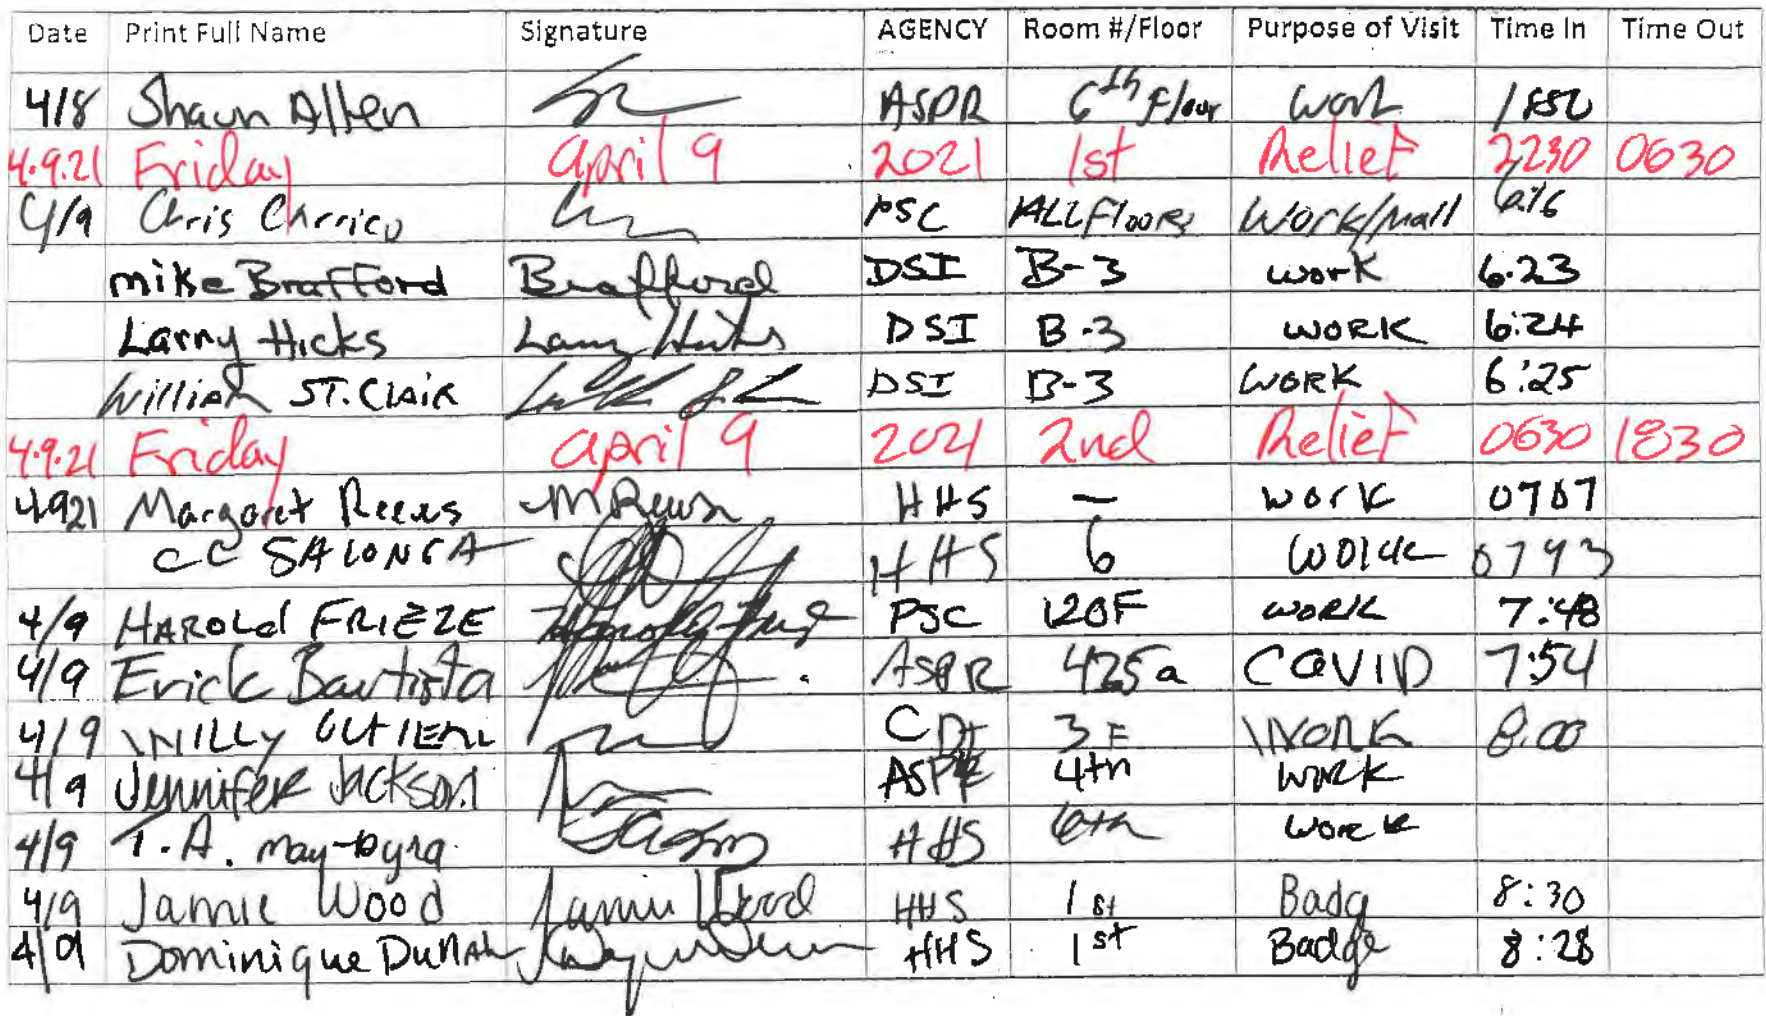 Date Print Full Name Signature AGENCY Room #/Floor Purpose of Visit Time In Time Out
4/8 Shaun Allen ASPR 6th Floor Work
4.9.21 Friday April 9 2021 1st Relief 2230 0630
4/9 Chris Carrico PSC ALL Floors Work/Mail 6:16
Mike Brafford Brafford DSI B-3 work 6:23
Larry Hicks Larry Hicks DSI B-3 WORK 6:24
William ST. Clair DSI B-3 WORK 6:25
4.9.21 Friday April 9 2021 2nd Relief 0630 1830
4921 Margaret Reeves MReeves HHS - work 0707
CC SALONGA HHS 6 0743
4/9 HAROLd FRIEZE Harold PSC 120F WORK 7:48
4/9 Erick Bautista ASPR 425a COVID 7:54
4/9 WILLY 3F WORK 8:00
4/9 Jennifer Jackson ASPR 4th WORK
4/9 T.A. may- HHS 6th Work
4/9 Jamie Wood Jamie Wood HHS 1st Badg 8:30
4/9 Dominique HHS 1st Badge 8:28